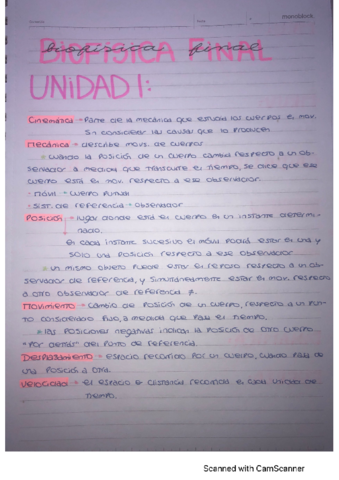 monoblock
BIOFISICA FINAL
biofisica final
UNIDAD 1:
Cinemática → Parte de la mecánica que estudia los cuerpos en mov.
Sin considerar las causas que lo producen
Mecánica → describe movs. de cuerpos
Cuando la posición de un cuerpo cambia respecto a un ob-
servador a medida que transcurre el tiempo, se dice que ese
cuerpo está en mov. respecto a ese observador.
Móvil = Cuerpo puntual
Sist. de referencia = observador
Posición → lugar donde está el cuerpo en un instante determi-
nado.
En cada instante sucesivo el móvil podrá estar en una y
sólo una posición respecto a ese observador
un mismo objeto puede estar en reposo respecto a un ob-
servador de referencia, y simultáneamente estar en mov. respecto
a otro observador de referencia.
Movimiento → Cambio de posición de un cuerpo, respecto a un pun-
to considerado fijo, a medida que pasa el tiempo.
las posiciones negativas indican la posición de otro cuerpo
"por detrás" del punto de referencia.
Desplazamiento → espacio recorrido por un cuerpo, cuando pasa de
una posición a otra.
Velocidad → el espacio o distancia recorrida en cada unidad de
tiempo.
Scanned with CamScanner